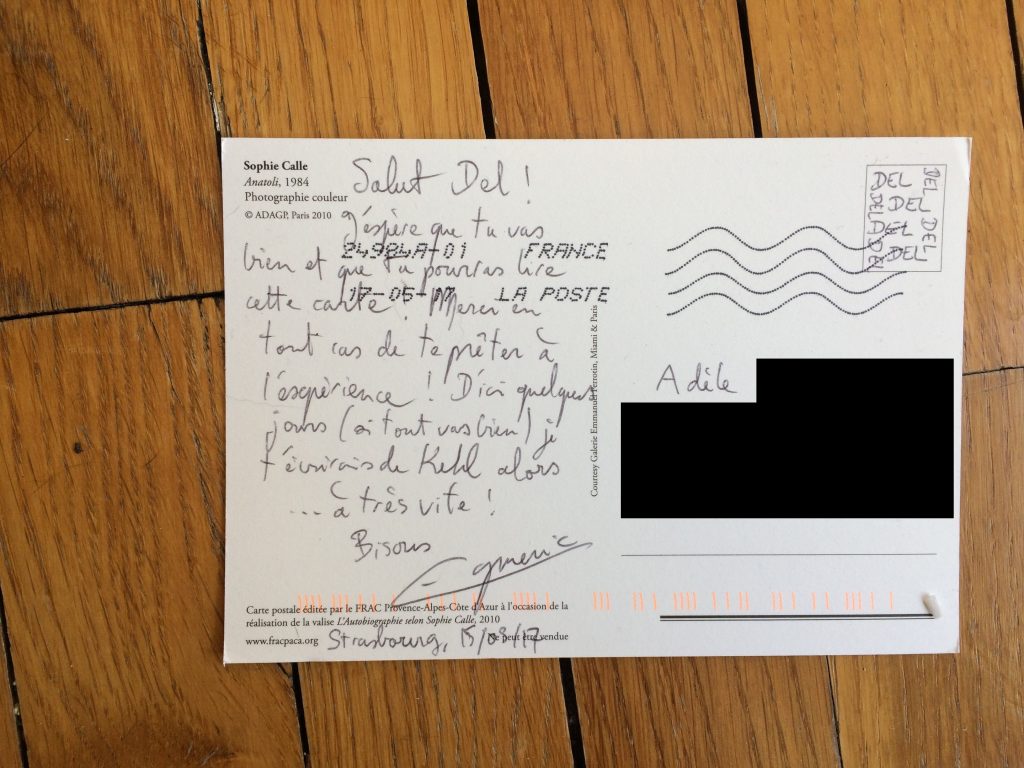 Sophie Calle
Anatoli, 1984
Photographie couleur
© ADAGP, Paris 2010
Salut Del !
J'éspère que tu vas
bien et que tu pourras lire
cette carte ! Merci en
tout cas de te prêter à
l'éxpèrience ! D'ici quelques
jours (si tout vas bien) je
t'écrirais de Kehl alors
... à très vite !
Bisous
24984A-01 FRANCE
17-05-17 LA POSTE
Carte postale éditée par le FRAC Provence-Alpes-Côte d'Azur à l'occasion de la
réalisation de la valise L'Autobiographie selon Sophie Calle, 2010
www.fracpaca.org
Ne peut être vendue
Strasbourg, 15/
Courtesy Galerie Emmanuel Perrotin, Miami & Paris
DEL
DEL
DEL
DEL
DEL
DEL
DEL
DEL
Adèle